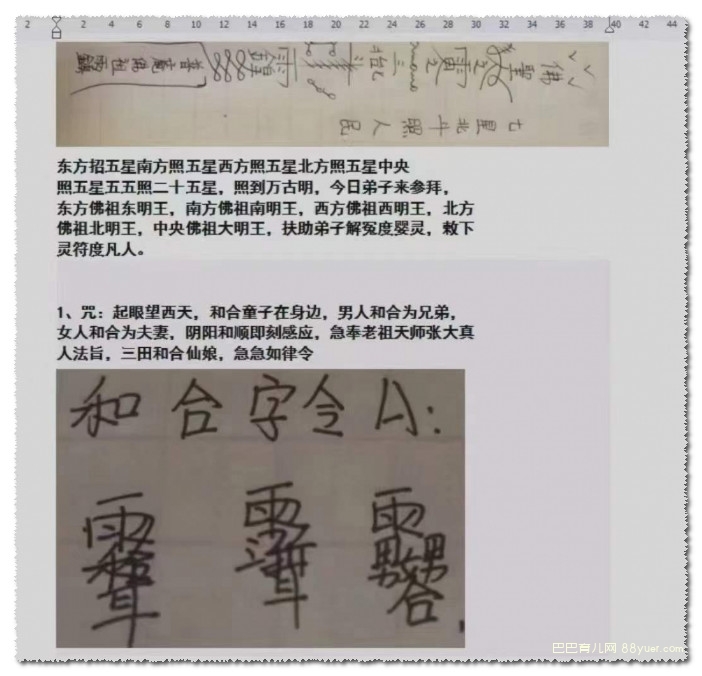 2 2 4 6 8 10 12 14 16 18 20 22 24 26 28 30 32 34 36 38 40 42 44
七星北斗照人民
东方招五星南方照五星西方照五星北方照五星中央
照五星五五照二十五星，照到万古明，今日弟子来参拜，
东方佛祖东明王，南方佛祖南明王，西方佛祖西明王，北方
佛祖北明王，中央佛祖大明王，扶助弟子解冤度婴灵，敕下
灵符度凡人。
1、咒：起眼望西天，和合童子在身边，男人和合为兄弟，
女人和合为夫妻，阴阳和顺即刻感应，急奉老祖天师张大真
人法旨，三田和合仙娘，急急如律令
和合字令
巴巴育儿网 88yuer.com